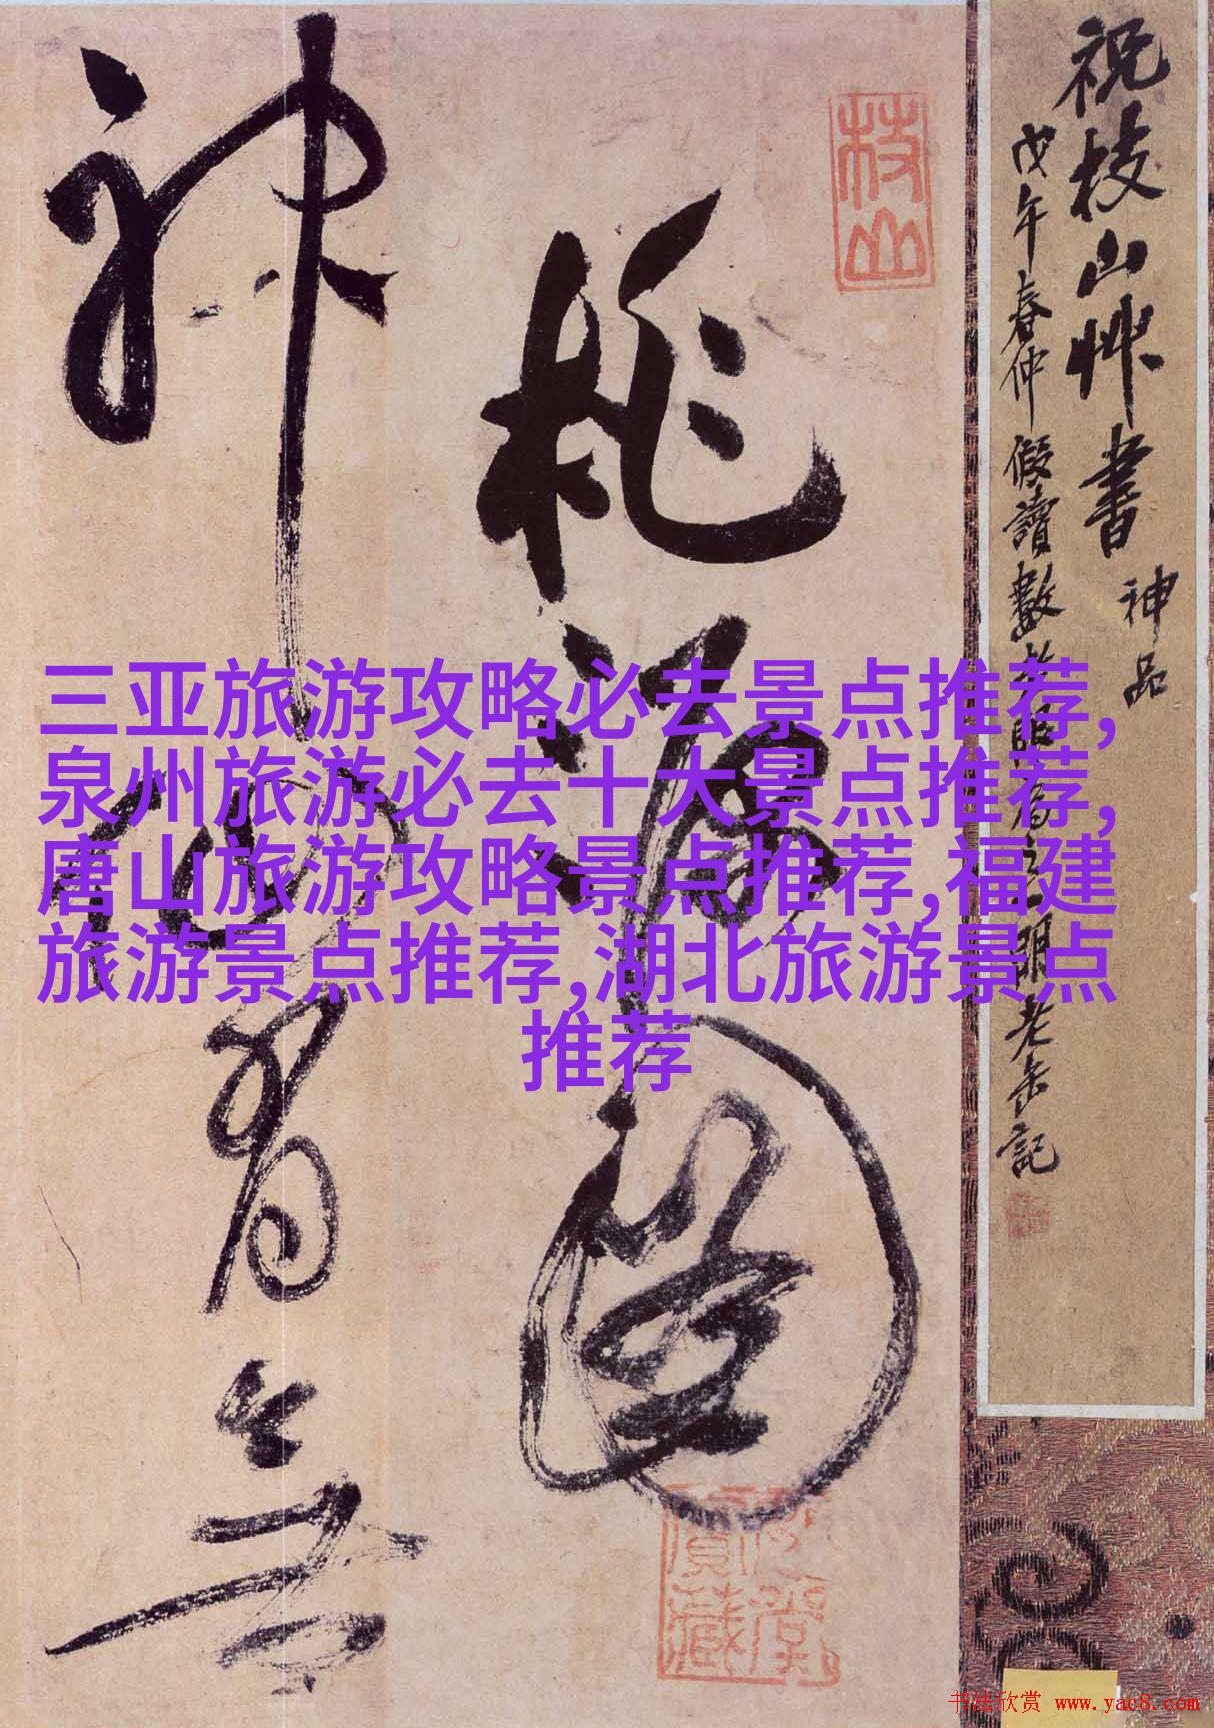 三亚旅游攻略必去景点推荐,
泉州旅游必去十大景点推荐,
唐山旅游攻略景点推荐,福建
旅游景点推荐,湖北旅游景点
推荐
祝枝山艸書
神品
戊午春仲假讀數 明老缶記
枝山
桃源圖
神仙有無
书法欣赏 www.yac8.com